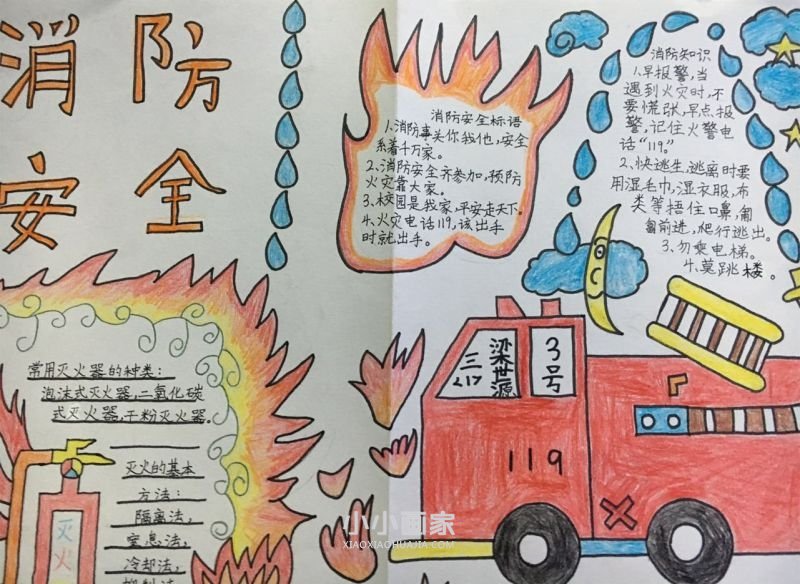 消防
安全
消防安全标语
1、消防事关你我他,安全
系着千万家。
2、消防安全齐参加,预防
火灾靠大家。
3、校园是我家,平安走天下。
4、火灾电话119,该出手
时就出手。
消防知识
1、早报警,当
遇到火灾时,不
要慌张,早点报
警,记住火警电
话“119。”
2、快逃生,逃离时要
用湿毛巾,湿衣服,布
类等捂住口鼻,匍
匐前进,爬行逃出。
3、勿乘电梯。
4、莫跳楼。
常用灭火器的种类:
泡沫式灭火器,二氧化碳
式灭火器,干粉灭火器。
灭火的基本
方法:
隔离法,
窒息法,
冷却法,
抑制法
灭
火
三
217
梁世源
3号
119
小小画家
XIAOXIAOHUAJIA.COM